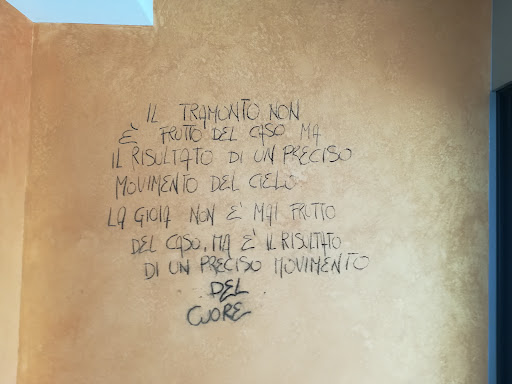 IL TRAMONTO NON
È FRUTTO DEL CASO MA
IL RISULTATO DI UN PRECISO
MOVIMENTO DEL CIELO
LA GIOIA NON E' MAI FRUTTO
DEL CASO, MA E' IL RISULTATO
DI UN PRECISO MOVIMENTO
DEL
CUORE